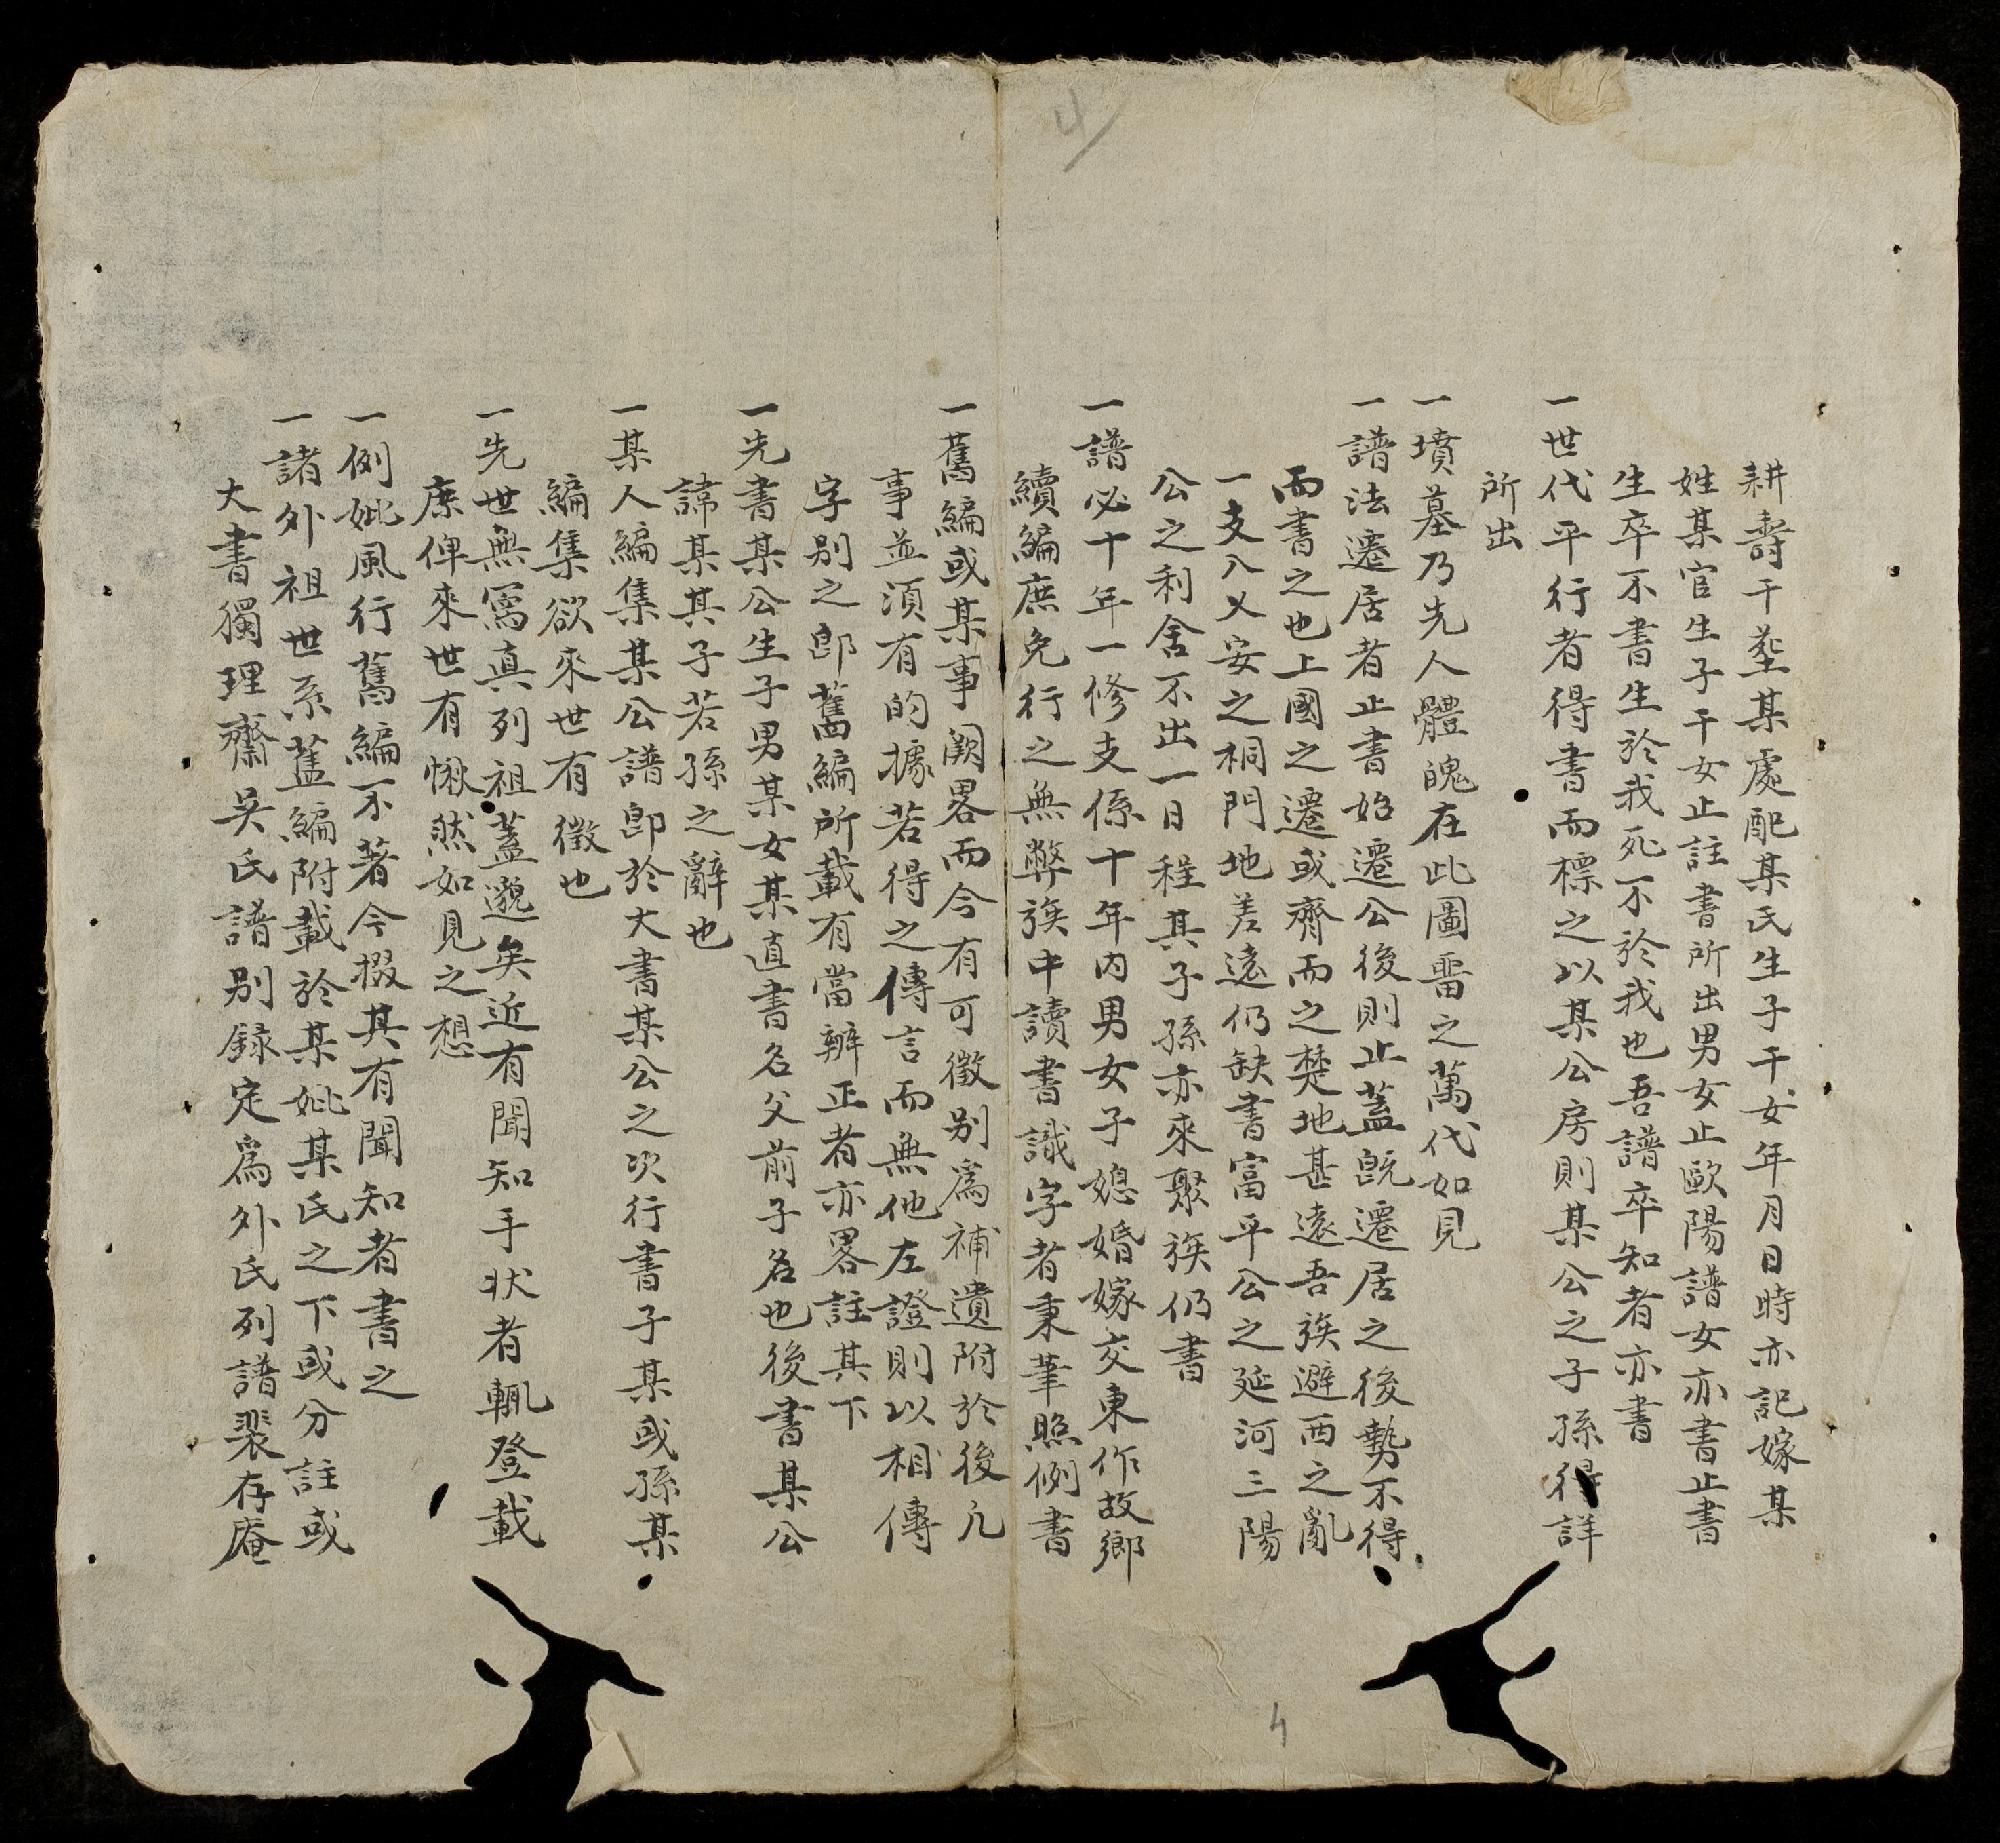 4
耕壽干塟某處配某氏生子干女年月日時亦記嫁某
姓某官生子干女止註書所出男女止歐陽譜女亦書止書
生卒不書生於我死不於我也吾譜卒知者亦書
一世代平行者得書而標之以某公房則某公之子孫得詳
所出
一墳墓乃先人體魄在此圖畱之萬代如見
一譜法遷居者止書始遷公後則止蓋旣遷居之後勢不得
而書之也上國之遷或齊而之楚地甚遠吾族避西之亂
一支入乂安之祠門地差遠仍缺書富平公之延河三陽
公之利舍不出一日程其子孫亦來聚族仍書
一譜必十年一修支係十年内男女子媳婚嫁交東作故鄉
續編庶免行之無弊族中讀書識字者秉筆照例書
一舊編或某事闕畧而今有可徵别爲補遺附於後凡
事並須有的據若得之傳言而無他左證則以相傳
字别之卽舊編所載有當辨正者亦畧註其下
一先書某公生子男某女某直書名父前子名也後書某公
諱某其子若孫之辭也
一某人編集某公譜卽於大書某公之次行書子某或孫某
編集欲來世有徵也
一先世無寫真列祖蓋邈矣近有聞知手状者輒登載
庶俾來世有愀然如見之想
一例妣風行舊編不著今掇其有聞知者書之
一諸外祖世系舊編附載於某妣某氏之下或分註或
大書獨理齋吴氏譜别録定爲外氏列譜裴存庵
4